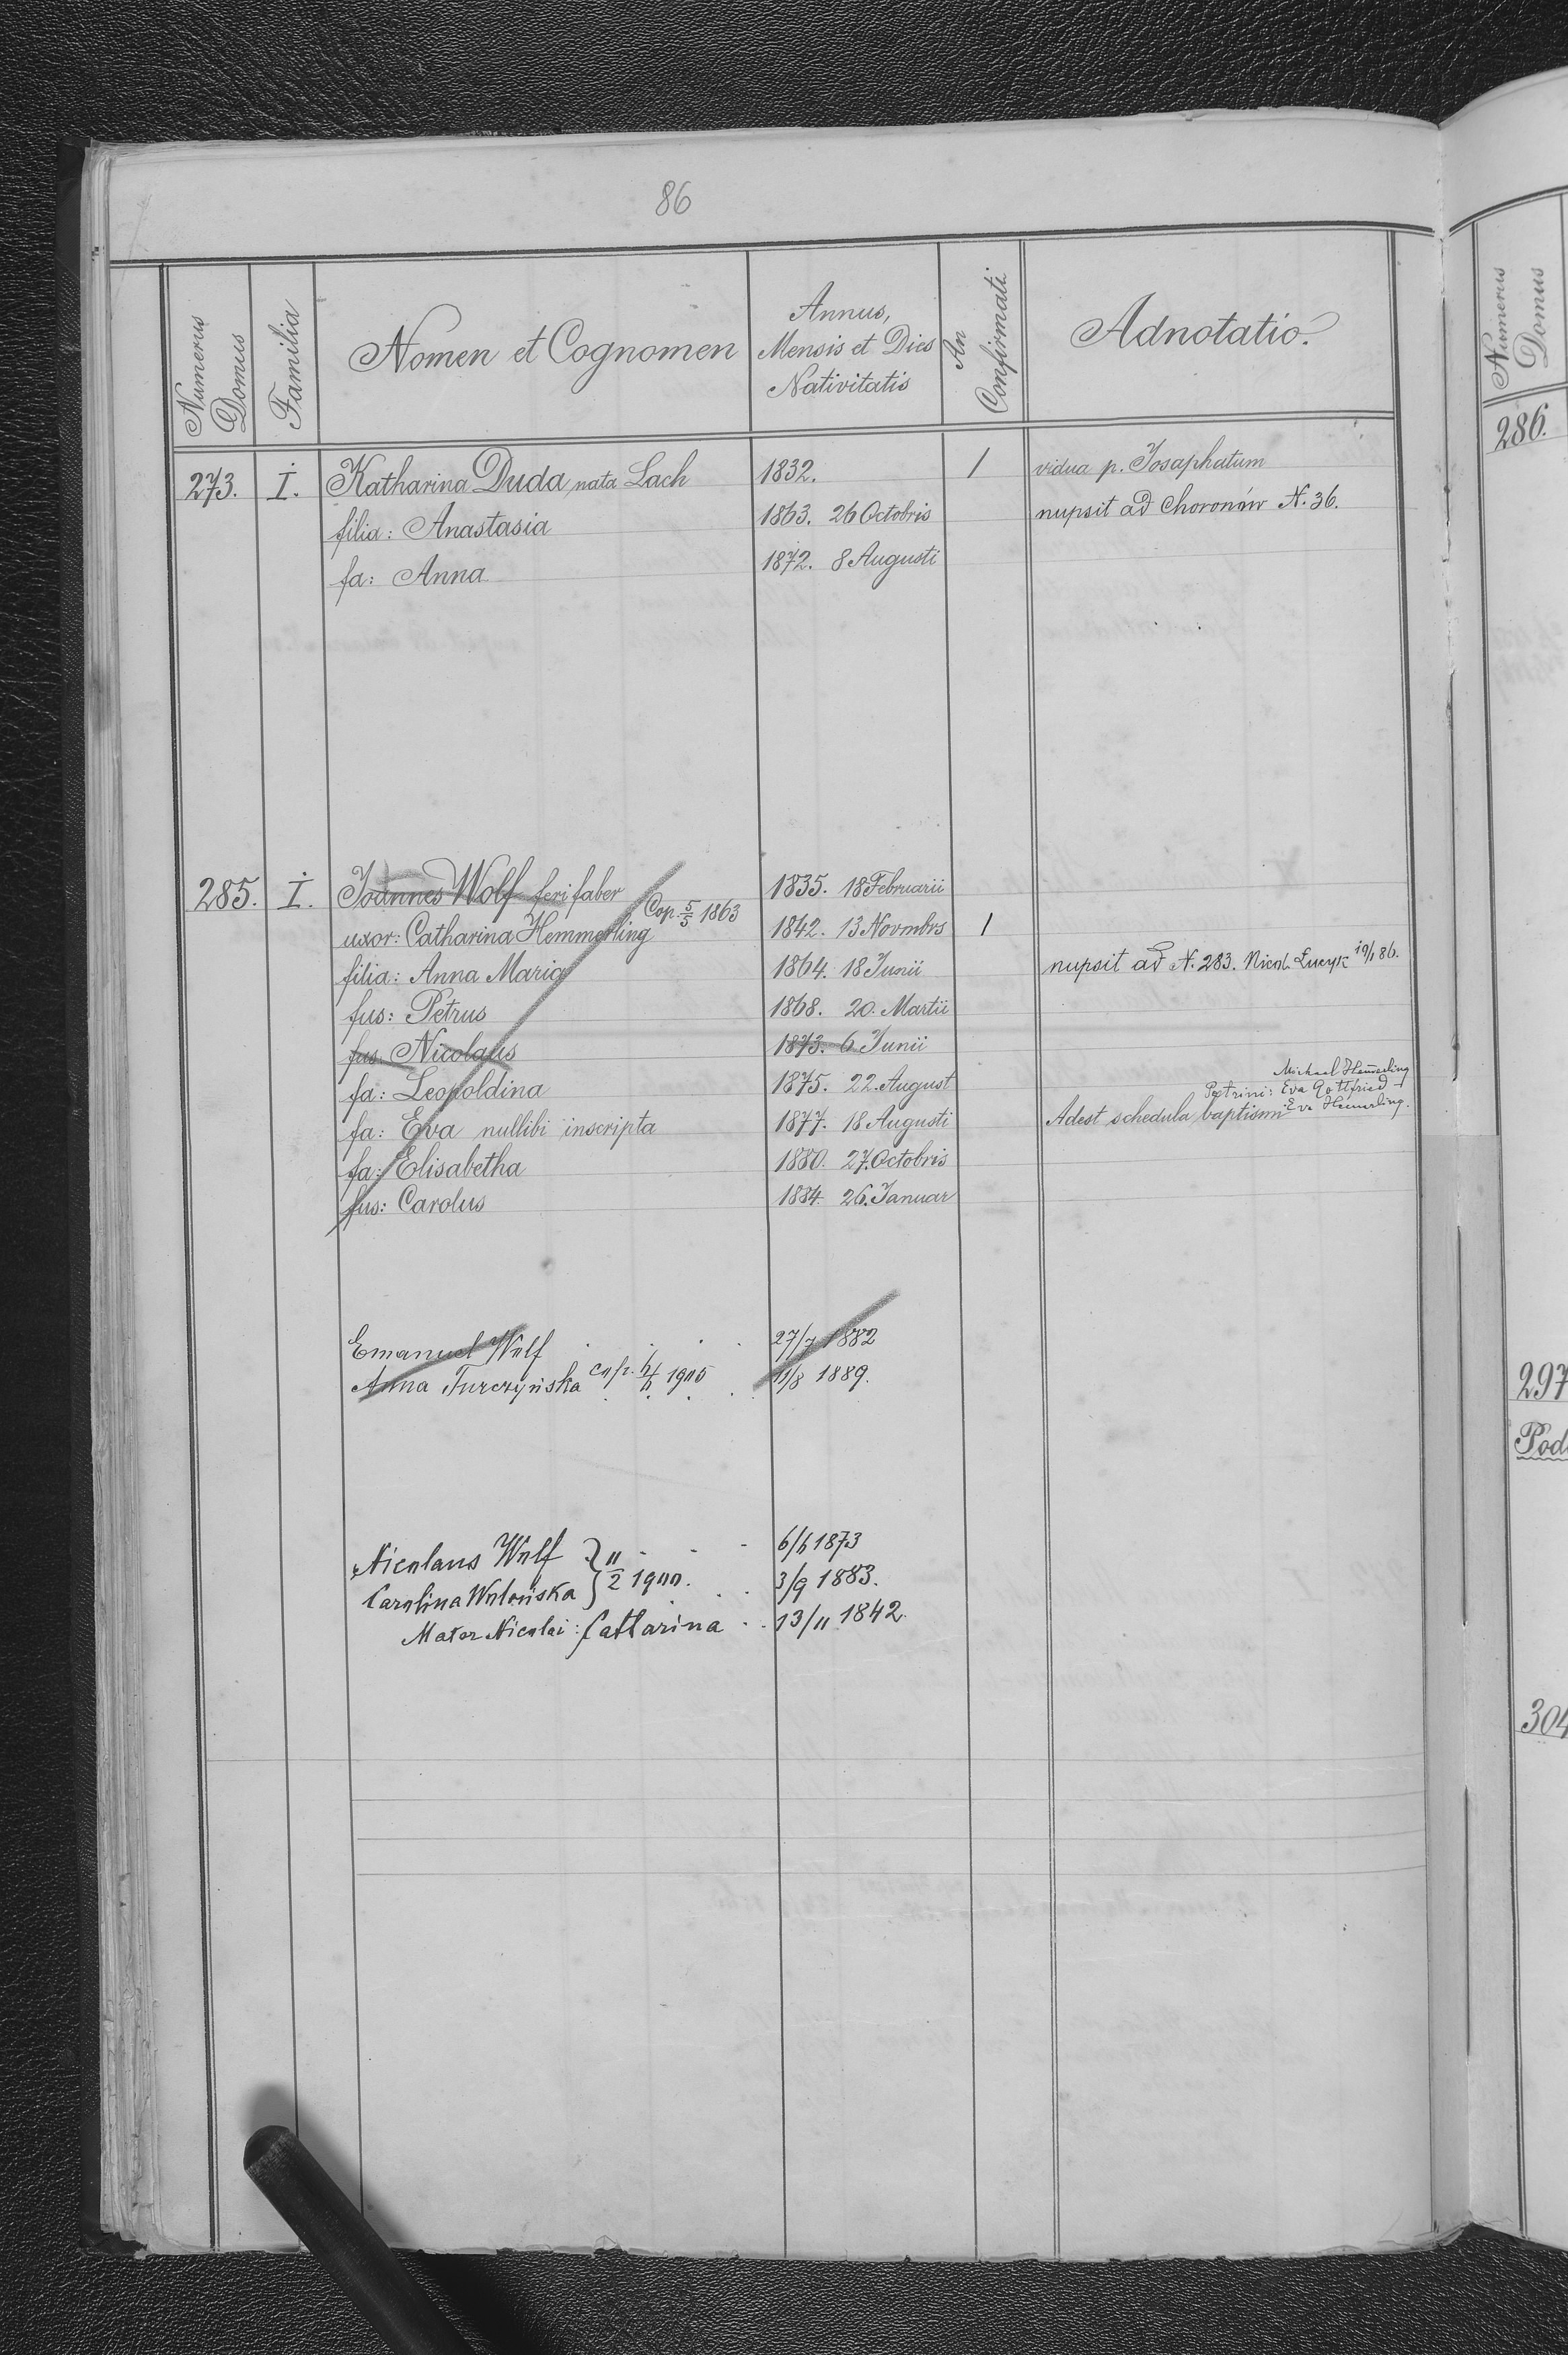 86
Numerus Domus
Familia
Nomen et Cognomen
Annus, Mensis et Dies Nativitatis
An Confirmati
Adnotatio.
273. I. Katharina Duda nata Lach 1832. 1 vidua p. Josaphatum
filia: Anastasia 1863. 26 Octobris nupsit ad Choronów N. 36.
fa: Anna 1872. 8 Augusti
285. I. Joannes Wolf ferifaber 1835. 18 Februarii
Cop. 5/5 1863
uxor: Catharina Hemmerling 1842. 13 Novmbrs 1
filia: Anna Maria 1864. 18 Junii nupsit ad N. 283. Nicol. Łucyk 19/1 86.
fus: Petrus 1868. 20. Martii
fus. Nicolaus 1873. 6 Junii
fa: Leopoldina 1875. 22. August
Michael Hemerling
Patrini: Eva Gottfried
fa: Eva nullibi inscripta 1877. 18 Augusti Adest schedula baptismi Eva Hemerling.
fa: Elisabetha 1880. 27. Octobris
fus: Carolus 1884. 26. Januar
Emanuel Wolf 27/7 1882
Anna Turczyńska cop. 1905 11/8 1889.
Nicolaus Wolf } 11/2 1900. 6/6 1873
Carolina Wolońska 3/9 1883.
Mater Nicolai: Catharina 13/11 1842.
Numerus Domus
286.
297
Pod
304